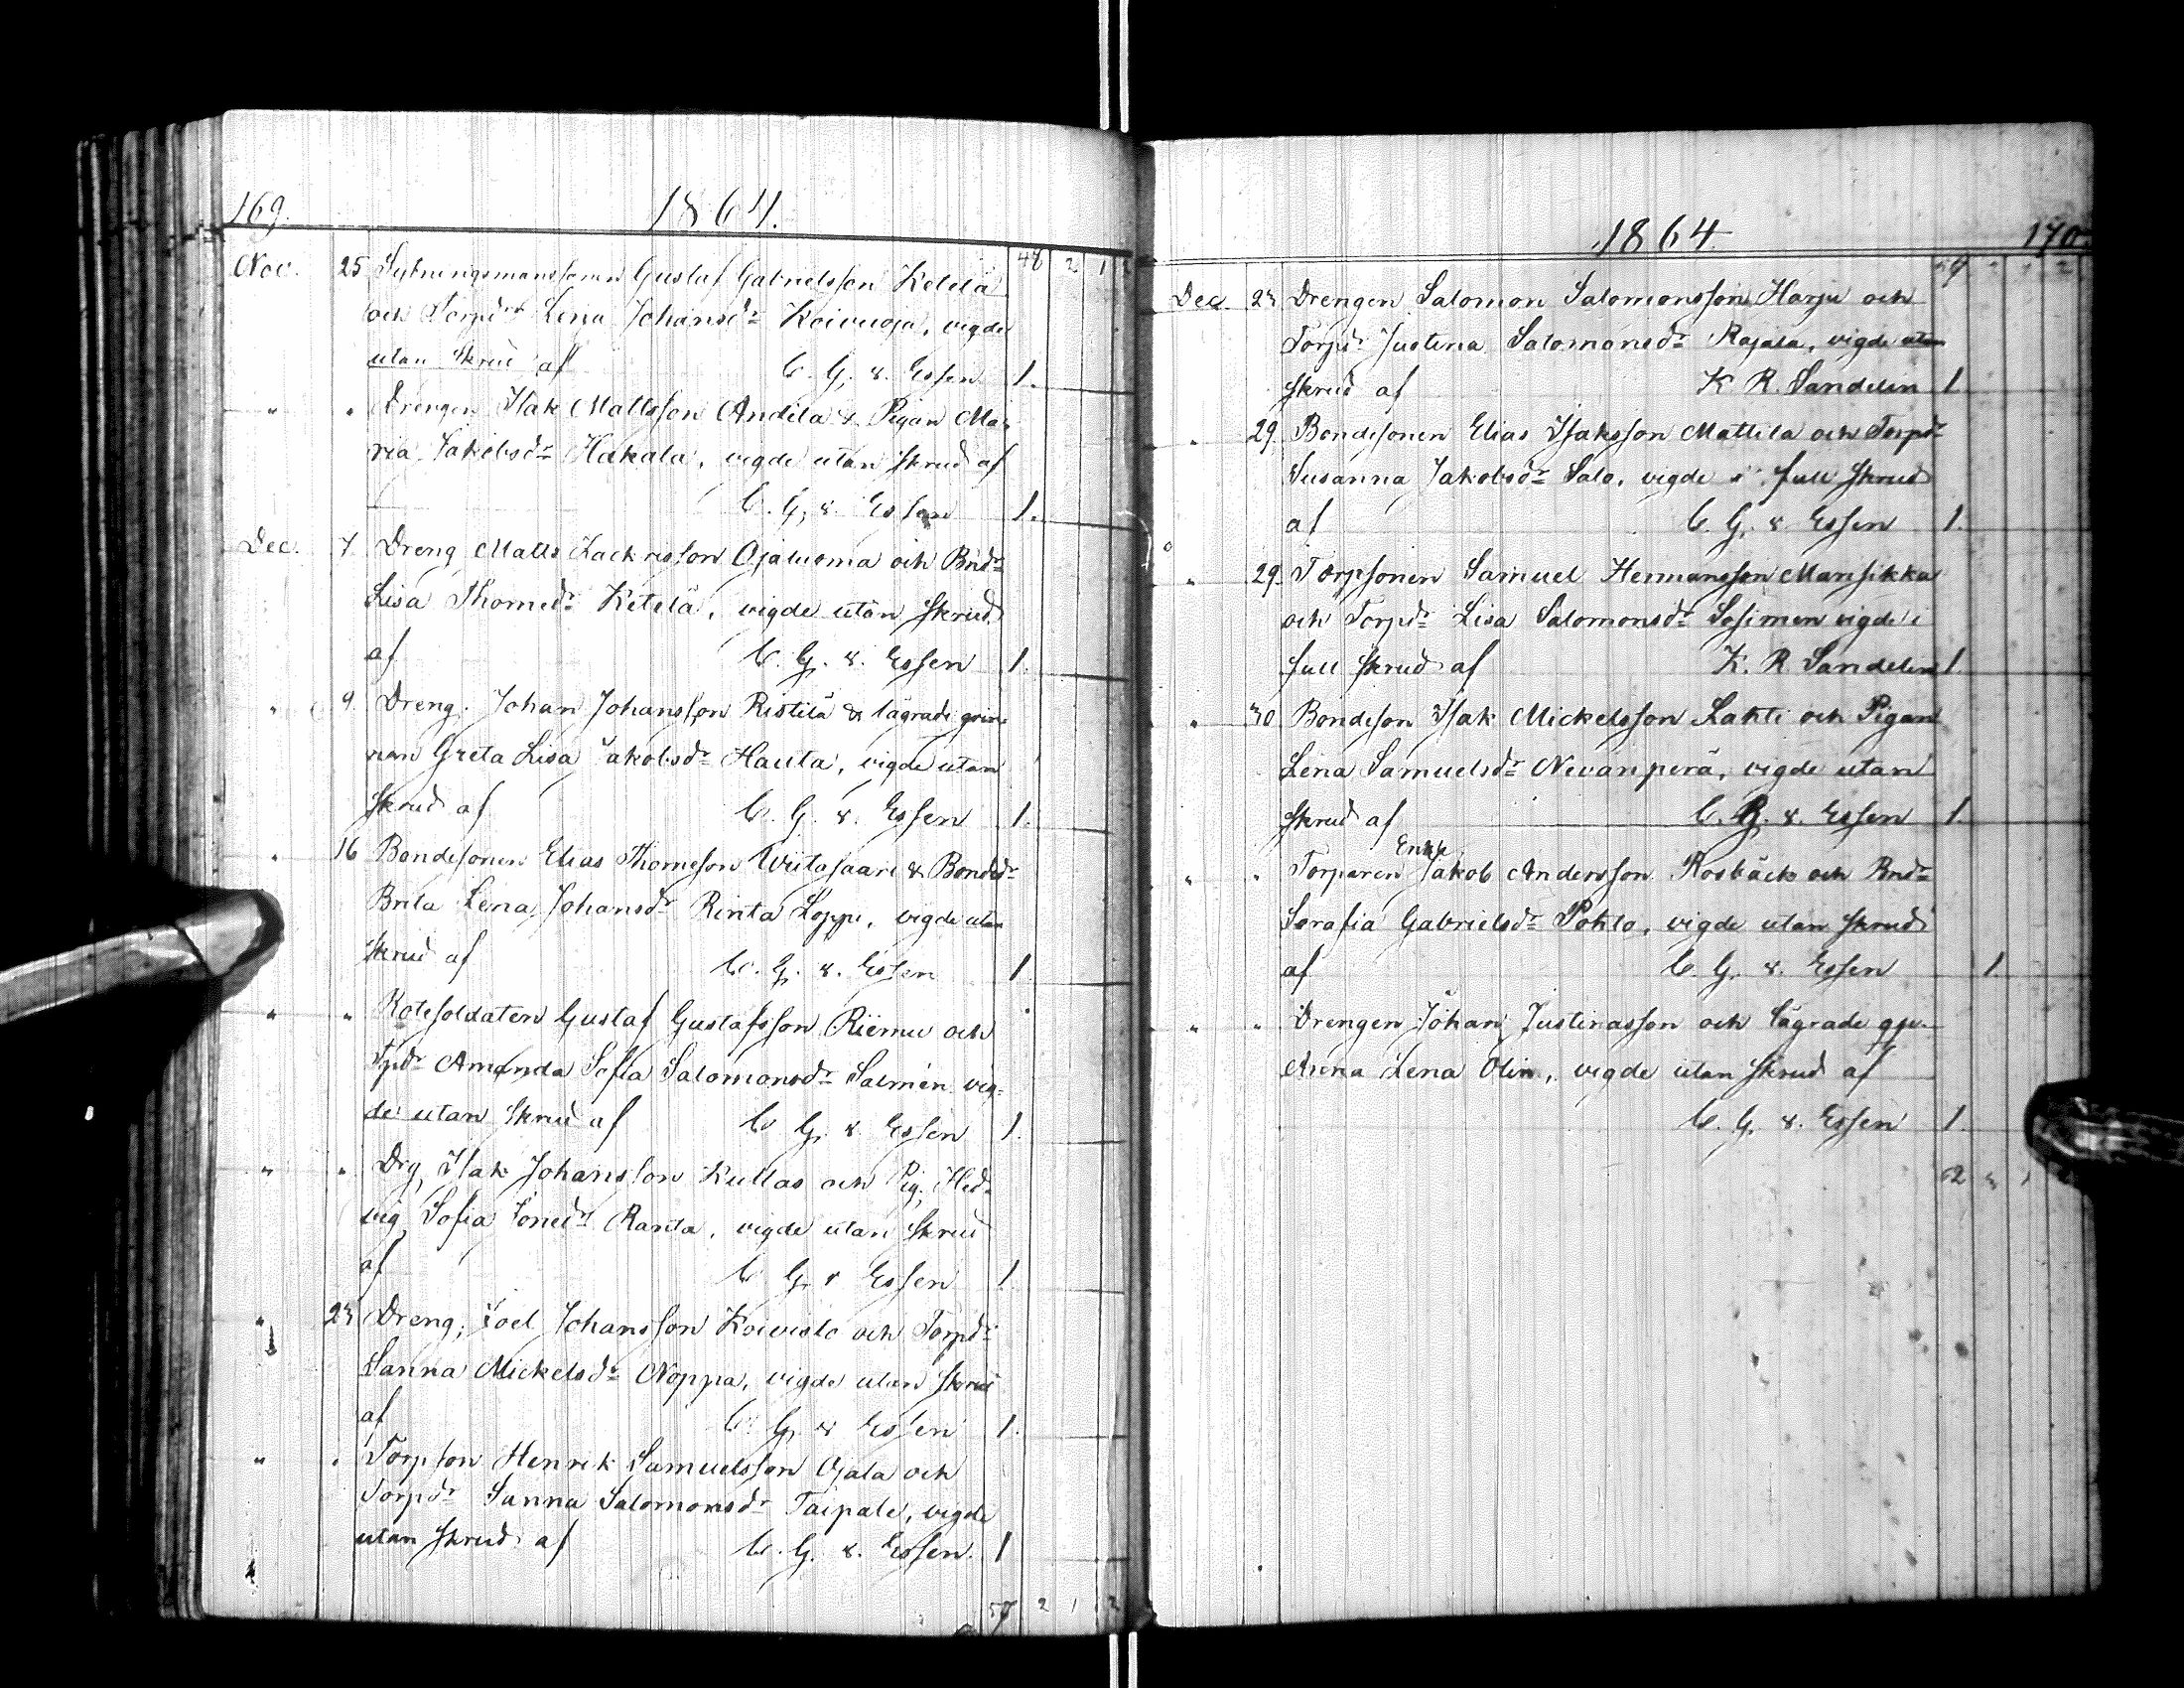 169. 1864.
48 2 1 2
Nov. 25 Sytningsmanssonen Gustaf Gabrielsson Ketelä
och Torpdr Lena Johansdr Koivuoja, vigde
utan skrud af C. G. v. Essen 1.
" " Drengen Isak Mattsson Andila & Pigan Ma-
ria Jakobsdr Hakala, vigde utan skrud af
C. G. v. Essen 1.
Dec. 7. Dreng Matts Zackrisson Ojaluoma och Bndr
Lisa Thomedr Ketelä, vigde utan skrud
af C. G. v. Essen 1.
" 9. Dreng. Johan Johansson Ristilä & lägrade qvin-
nan Greta Lisa Jakobsdr Hauta, vigde utan
skrud af C. G. v. Essen 1.
" 16 Bondesonen Elias Thomesson Wiitasaari & Bondedr
Brita Lena Johansdr Rinta Loppi, vigde utan
skrud af C. G. v. Essen 1.
" " Rotesoldaten Gustaf Gustafsson Riemu och
Tpdr Amanda Sofia Salomonsdr Salmén vig-
de utan skrud af C. G. v. Essen 1.
" " Drg, Isak Johansson Kullas och Pig. Hed-
vig Sofia Jonedr Ranta, vigde utan skrud
af C. G. v Essen 1.
" 23 Dreng; Joel Johansson Koivisto och Torpdr
Sanna Mickelsdr Noppa, vigde utan skrud
af C. G. v Essen 1.
" " Torpson Henrik Samuelsson Ojala och
Torpdr Sanna Salomonsdr Taipale, vigde
utan skrud af C. G. v. Essen. 1
57 2 1 2
1864 170.
57 2 1 2
Dec. 23 Drengen Salomon Salomonsson Harju och
Torpdr Justina Salomonsdr Rajala, vigde utan
skrud af K R. Sandelin 1
" 29. Bondesonen Elias Isaksson Mattila och Torpdr
Susanna Jakobsdr Salo, vigde i full skrud
af C. G. v Essen 1.
" 29. Torpsonen Samuel Hermansson Mansikka
och Torpdr Lisa Salomonsdr vigde i
full skrud af K. R Sandelin 1.
" 30 Bondeson Isak Mickelsson Lahti och Pigan
Lena Samuelsdr Nevanperä, vigde utan
skrud af C. G. v. Essen 1.
Enkl
" " Torparen Jakob Andersson Rosbäck och Bndr
Serafia Gabrielsdr Pohto, vigde utan skrud
af C. G. v. Essen 1
" " Drengen Johan Justinasson och lägrade qp.
Anna Lena Olin, vigde utan skrud af
C. G. v. Essen 1.
62 3 1